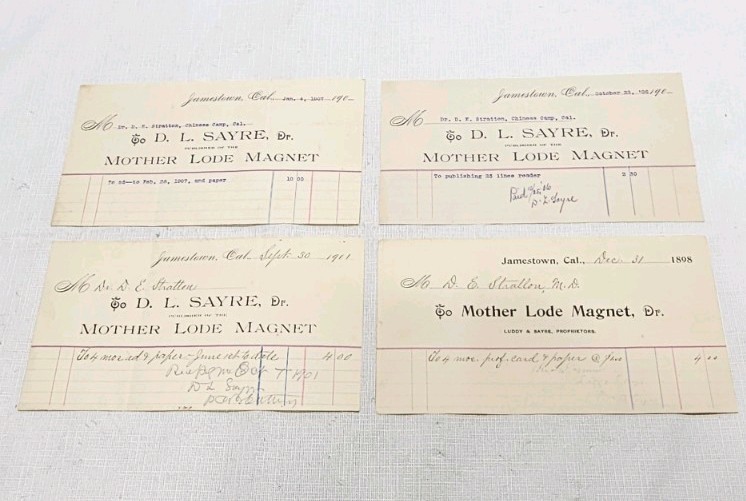 Jamestown, Cal., Jan. 4, 1907 190
M Dr. D. E. Stratton, Chinese Camp, Cal.
To D. L. SAYRE, Dr.
PUBLISHER OF THE
MOTHER LODE MAGNET
to Feb. 28, 1907, and paper 10 00
Jamestown, Cal. October 23, 190
M Dr. D. E. Stratton, Chinese Camp, Cal.
To D. L. SAYRE, Dr.
PUBLISHER OF THE
MOTHER LODE MAGNET
To publishing 25 lines reader 2 50
Paid
D. L. Sayre
Jamestown, Cal. Sept 30 1901
M Dr D. E. Stratton
To D. L. SAYRE, Dr.
PUBLISHER OF THE
MOTHER LODE MAGNET
To 4 mos ad & paper - June 1st to date 4 00
D L Sayre
Jamestown, Cal., Dec. 31 1898
M D. E. Stratton, M.D.
To Mother Lode Magnet, Dr.
LUDDY & SAYRE, PROPRIETORS.
To 4 mos. prof. card & paper @ 4 00